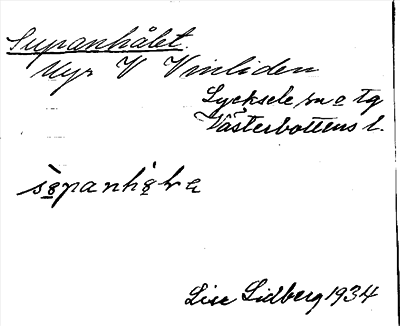 Supanhålet
Myr V Vinliden
Lycksele sn o tg
Västerbottens l.
Lisa Lidberg 1934